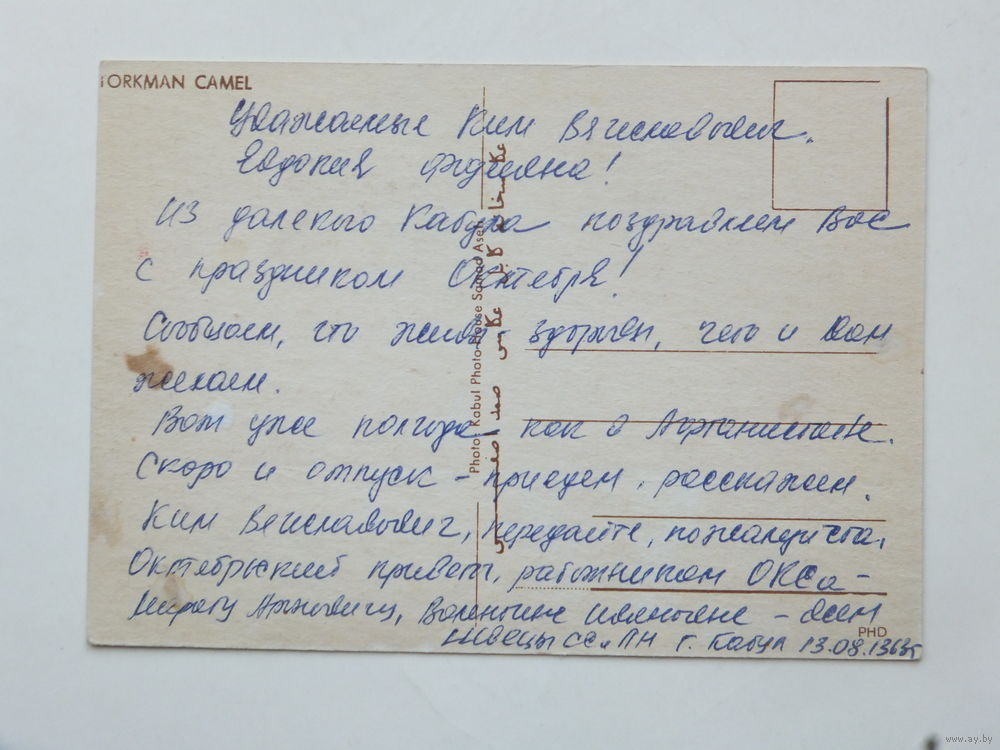 TORKMAN CAMEL
Уважаемые Ким Вячеславович,
Евдокия !
Из далекого Кабула поздравляем Вас
с праздником Октября!
Сообщаем, что живы-здоровы, чего и Вам
желаем.
Вот уже полгода как в Афганистане.
Скоро и отпуск – приедем, расскажем.
Ким Вячеславович, передайте, пожалуйста,
Октябрьский привет, работникам ОКСа –
Валентине – всем
г. Кабул 13.08.1363г
PHD
Photo: Kabul Photo House Samad Asefi
www.ay.by